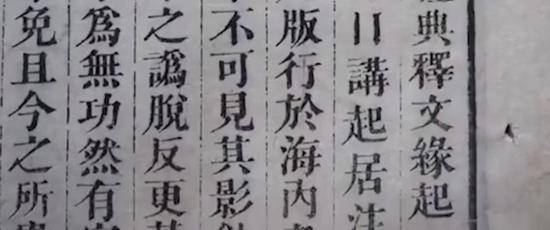 典釋文緣起
日講起居注
版行於海内
不可見其影
之譌脫反更甚
為無功然有
免且今之所